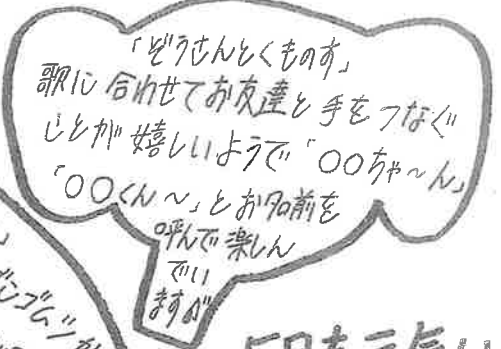 「ぞうさんとくものす」
歌に合わせてお友達と手をつなぐ
ことが嬉しいようで「〇〇ちゃ〜ん」
「〇〇くん〜」とお名前を
呼んで楽しん
でい
ます
ゴムシ